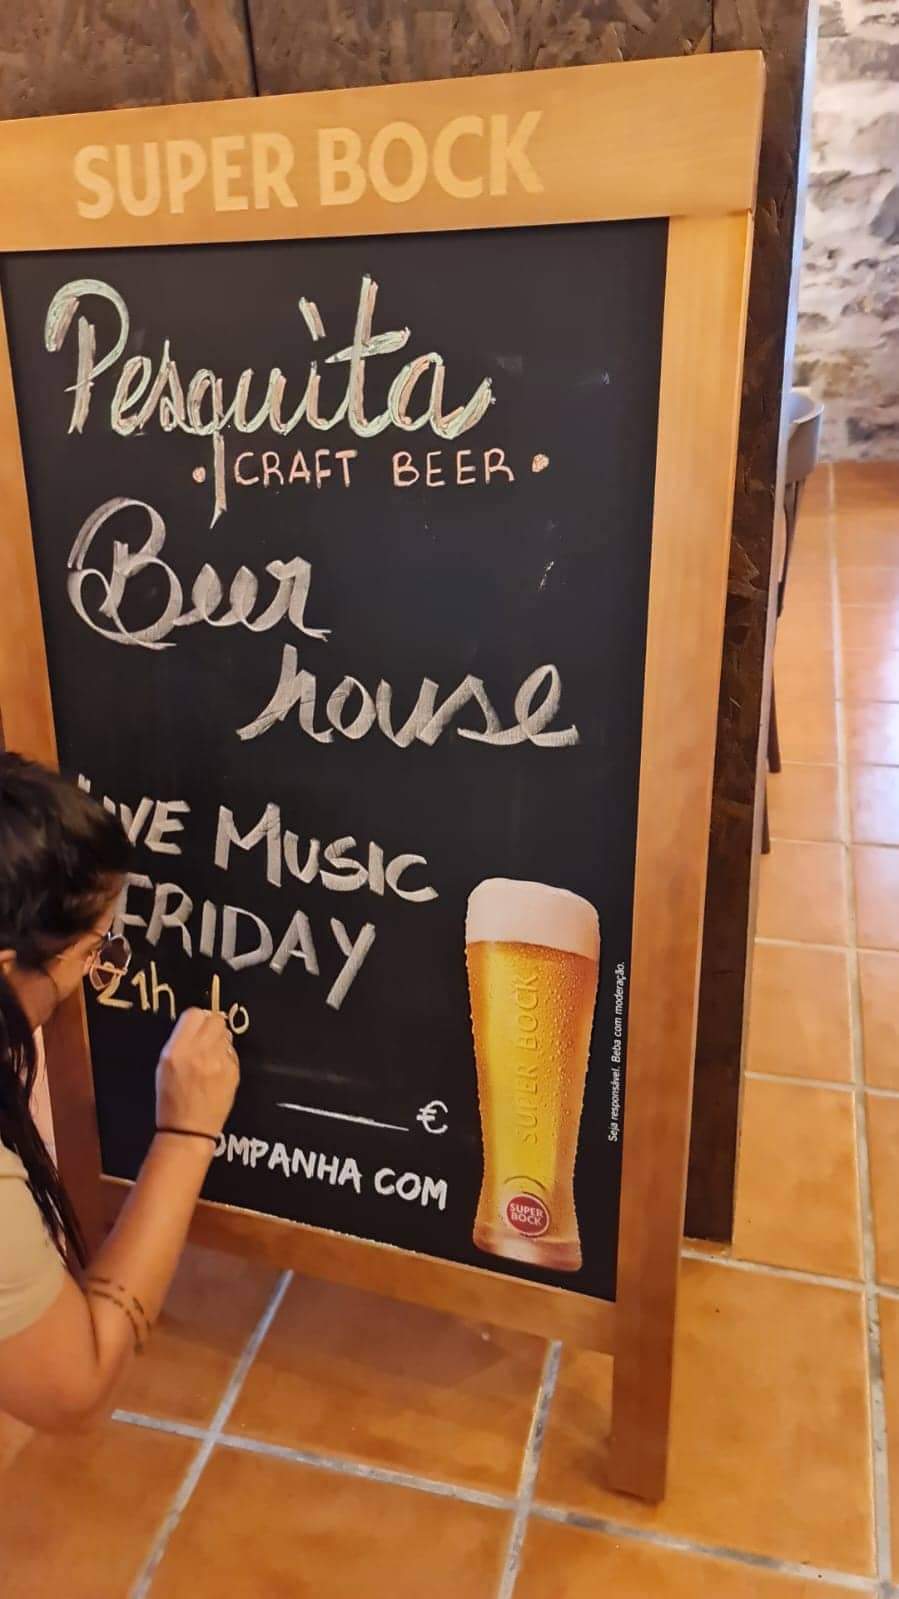 SUPER BOCK
Pesquita
• CRAFT BEER •
Beer
house
LIVE MUSIC
FRIDAY
21h to
€
OMPANHA COM
SUPER BOCK
SUPER
BOCK
Seja responsável. Beba com moderação.